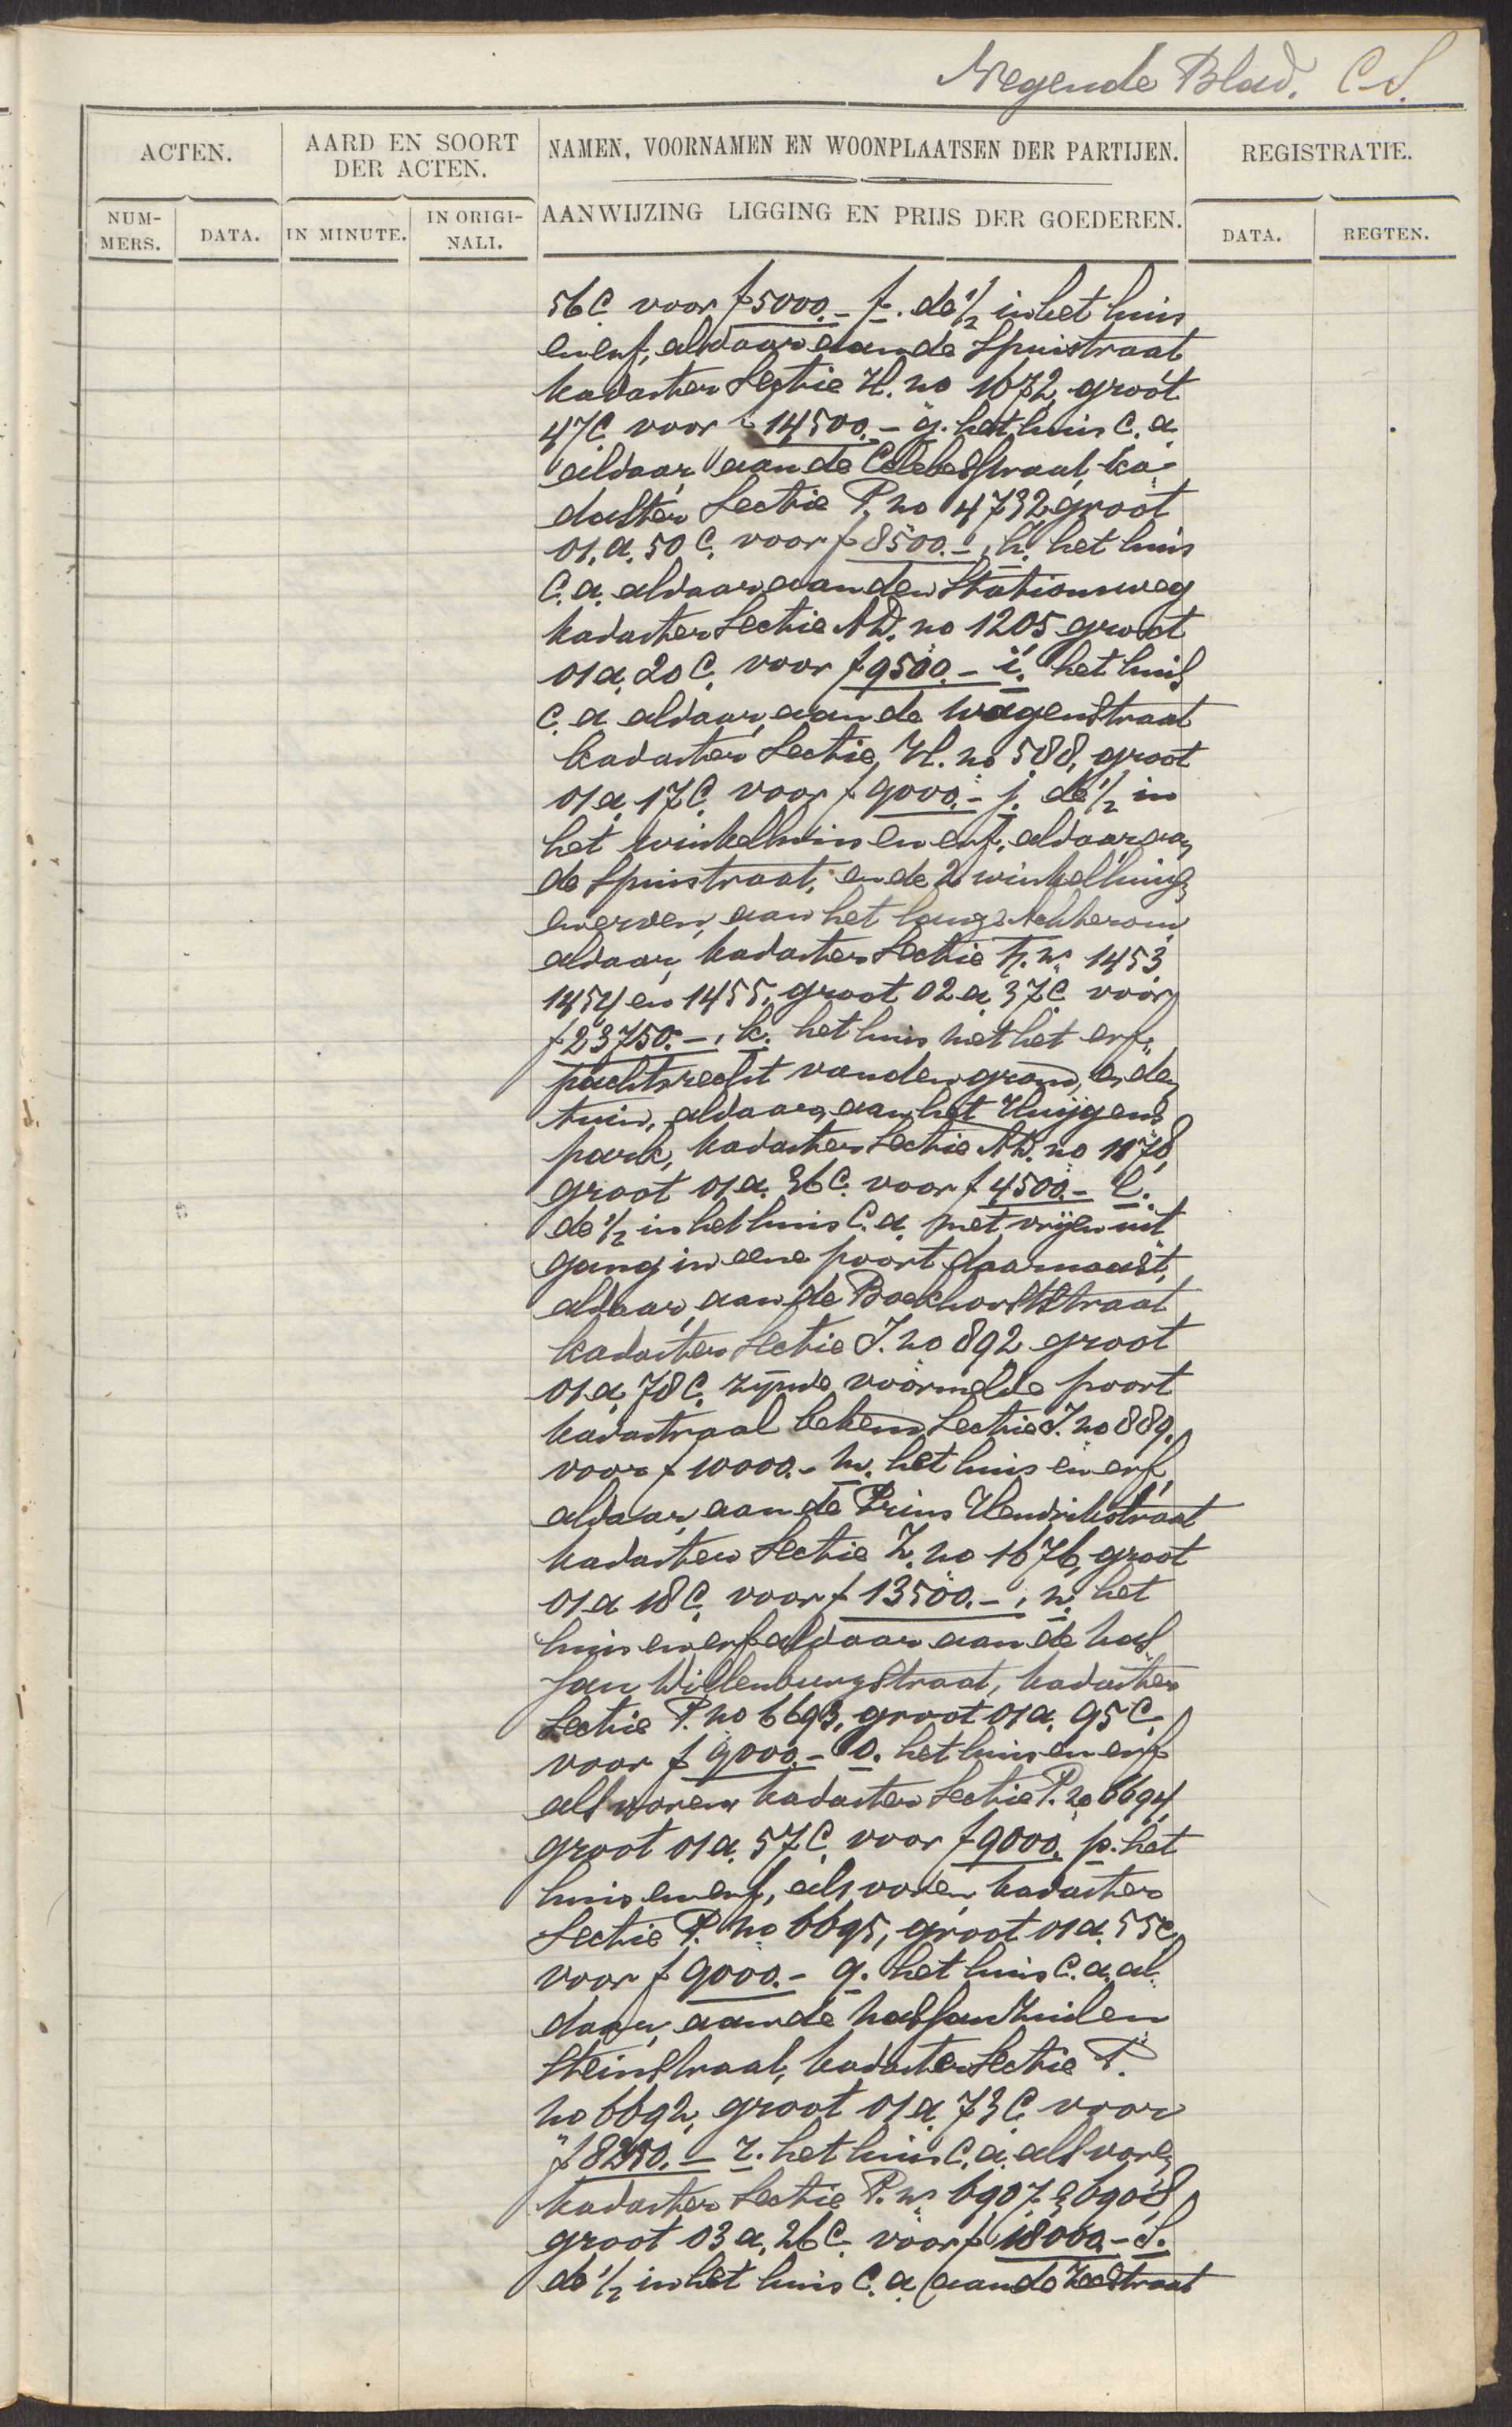 Negende Blad. C.S.
ACTEN.
AARD EN SOORT
DER ACTEN.
NAMEN, VOORNAMEN EN WOONPLAATSEN DER PARTIJEN.
REGISTRATIE.
NUM-
MERS.
DATA.
IN MINUTE.
IN ORIGI-
NALI.
AANWIJZING LIGGING EN PRIJS DER GOEDEREN.
DATA.
REGTEN.
56 C. voor f 5000.- f. de 1/2 in het huis
en erf, aldaar aan de Spuistraat
kadaster Sectie H. no 1672, groot
47 C voor f 14500.- g. het huis c.a.
aldaar, aan de Celebesstraat, ka-
daster Sectie P. no 4732 groot
01.a. 50 C. voor f 8500.-, h. het huis
c.a. aldaar aan den Stationsweg
kadaster Sectie AD. no 1205 groot
01 a. 20 C. voor f 9500.- i. het huis
c.a aldaar, aan de Wagenstraat
kadaster Sectie, H. no 588, groot
01 a. 17 C. voor f 9000.- j. de 1/2 in
het winkelhuis en erf, aldaar aan
de Spuistraat, en de 2 winkelhuizen
en erven, aan het lange Achterom
aldaar, kadaster Sectie H. ns 1453
1454 en 1455, groot 02 a 37 C. voor
f 23750.-, k. het huis met het erf-
pachtsrecht van den grond, en den
tuin, aldaar, aan het Huijgens
park, kadaster Sectie AD. no 1878,
groot 01 a. 36 C. voor f 4500.- l.
de 1/2 in het huis c.a. met vrijen uit
gang in eene poort daarnaast,
aldaar, aan de Boekhorststraat
kadaster Sectie J. no 892 groot
01 a. 78 C. zijnde voormelde poort
kadastraal bekend Sectie J. no 889.
voor f 10000.- m. het huis en erf,
aldaar, aan de Prins Hendrikstraat
kadaster Sectie Z. no 1676, groot
01 a 18 C. voor f 13500.-, n. het
huis en erf aldaar aan de Has
san Willenburgstraat, kadaster
Sectie P. no 6693, groot 01 a. 95 C.
voor f 9000.- o. het huis en erf
als voren kadaster Sectie P. no 6694,
groot 01 a. 57 C. voor f 9000. p. het
huis en erf, als voren, kadaster
Sectie P. no 6695, groot 01 a. 55 C,
voor f 9000.- q. het huis c.a. al-
daar, aan de Zuilen
steinstraat, kadaster Sectie P.
no 6692, groot 01 a. 73 C. voor
f 8250.- r. het huis c.a. als voren
kadaster Sectie P. ns 6907 & 6908,
groot 03 a. 26 C. voor f 18000.- S.
de 1/2 in het huis c.a aan de Zeestraat